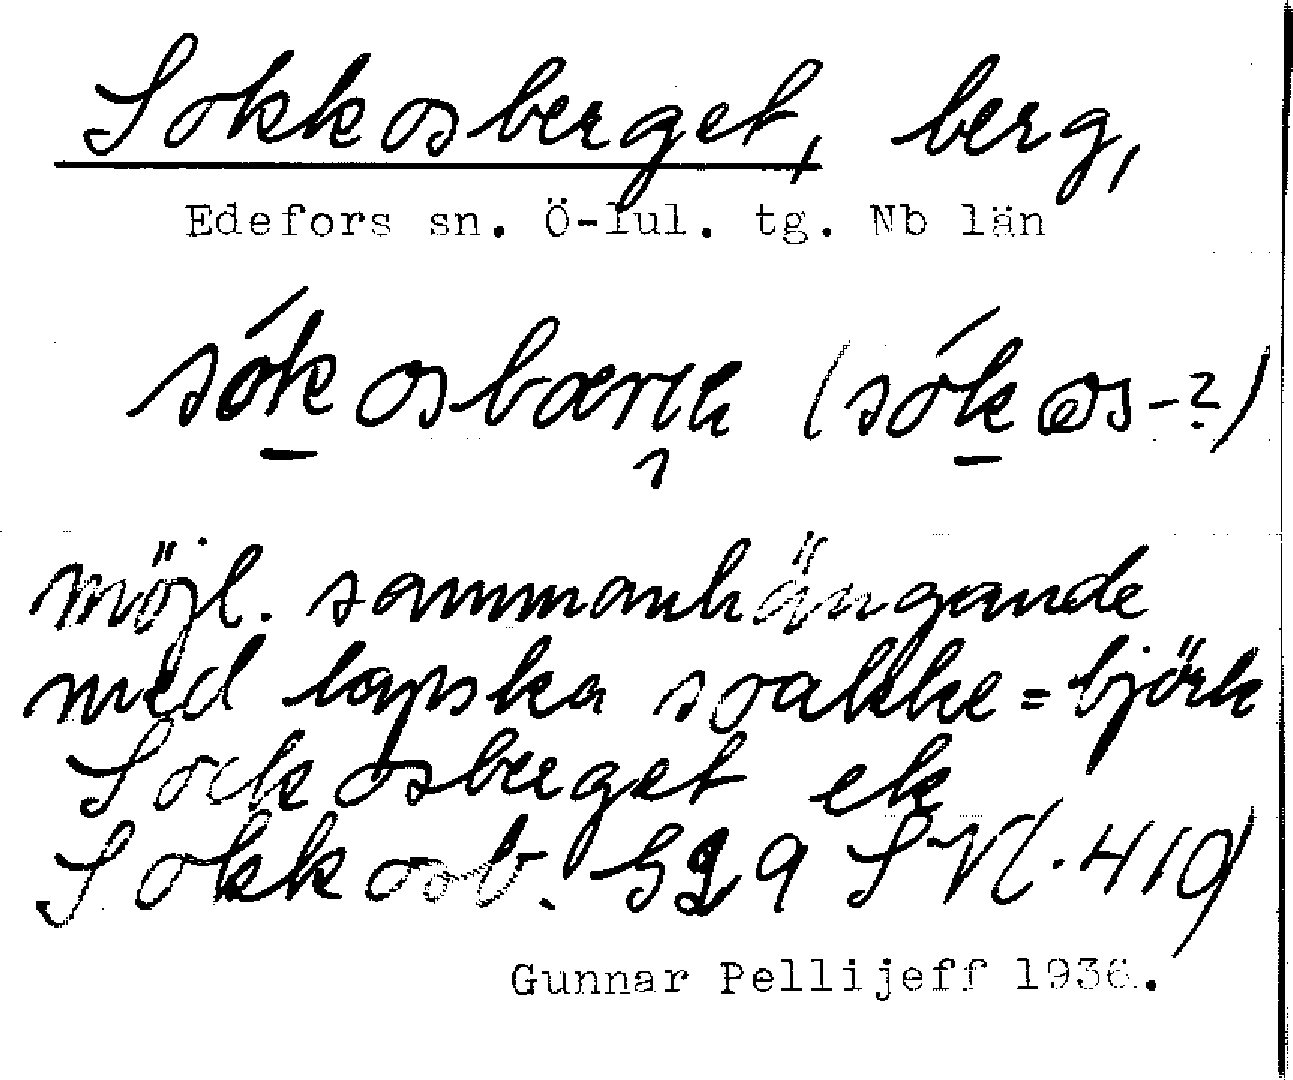 Sokkosberget, berg,
Edefors sn. Ö-Lul. tg. Nb län
sókosbærk (sókos-?)
möjl. sammanhängande
med lapska soakke = björk
Sockosberget ek
Sokkosb.
Gunnar Pellijeff 1936.